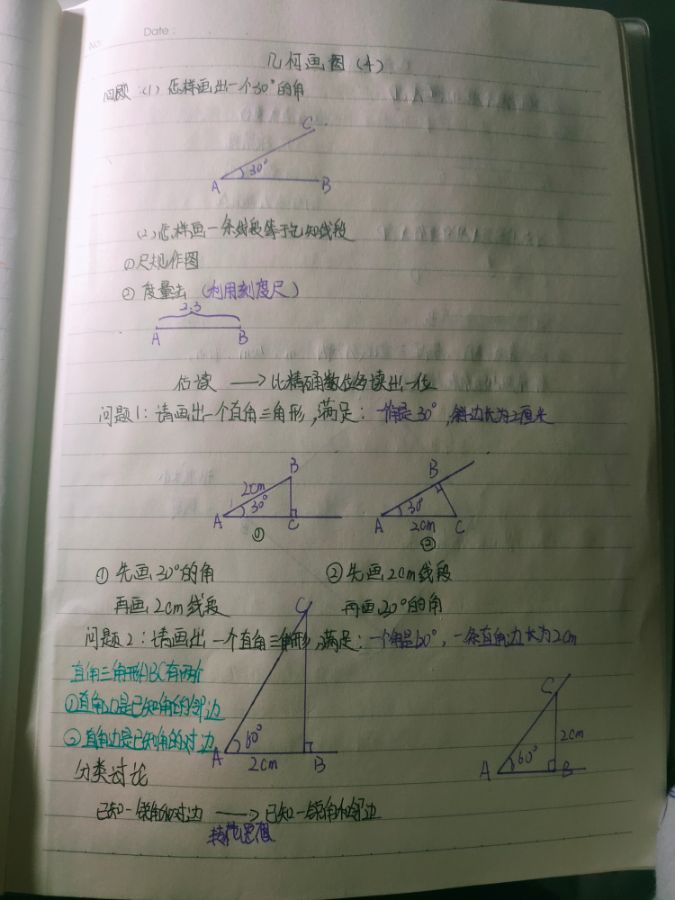 No.
Date:
几何画图(4)
回顾:(1)怎样画出一个30°的角
C
30°
A
B
(2)怎样画一条线段等于已知线段
①尺规作图
②度量法(利用刻度尺)
2.3
A
B
估读 → 比精确数位多读出一位
问题1:请画出一个直角三角形,满足:一角是30°,斜边长为2厘米
B
2cm
30°
A
C
①
B
30°
A
2cm
C
②
①先画30°的角
②先画2cm线段
再画2cm线段
再画30°的角
问题2:请画出一个直角三角形,满足:一个角是60°,一条直角边长为2cm
直角三角形ABC有两个
①直角边是已知角的邻边
②直角边是已知角的对边
C
60°
A
2cm
B
C
2cm
60°
A
B
分类讨论
已知一锐角和对边 → 已知一锐角和邻边
转化思想